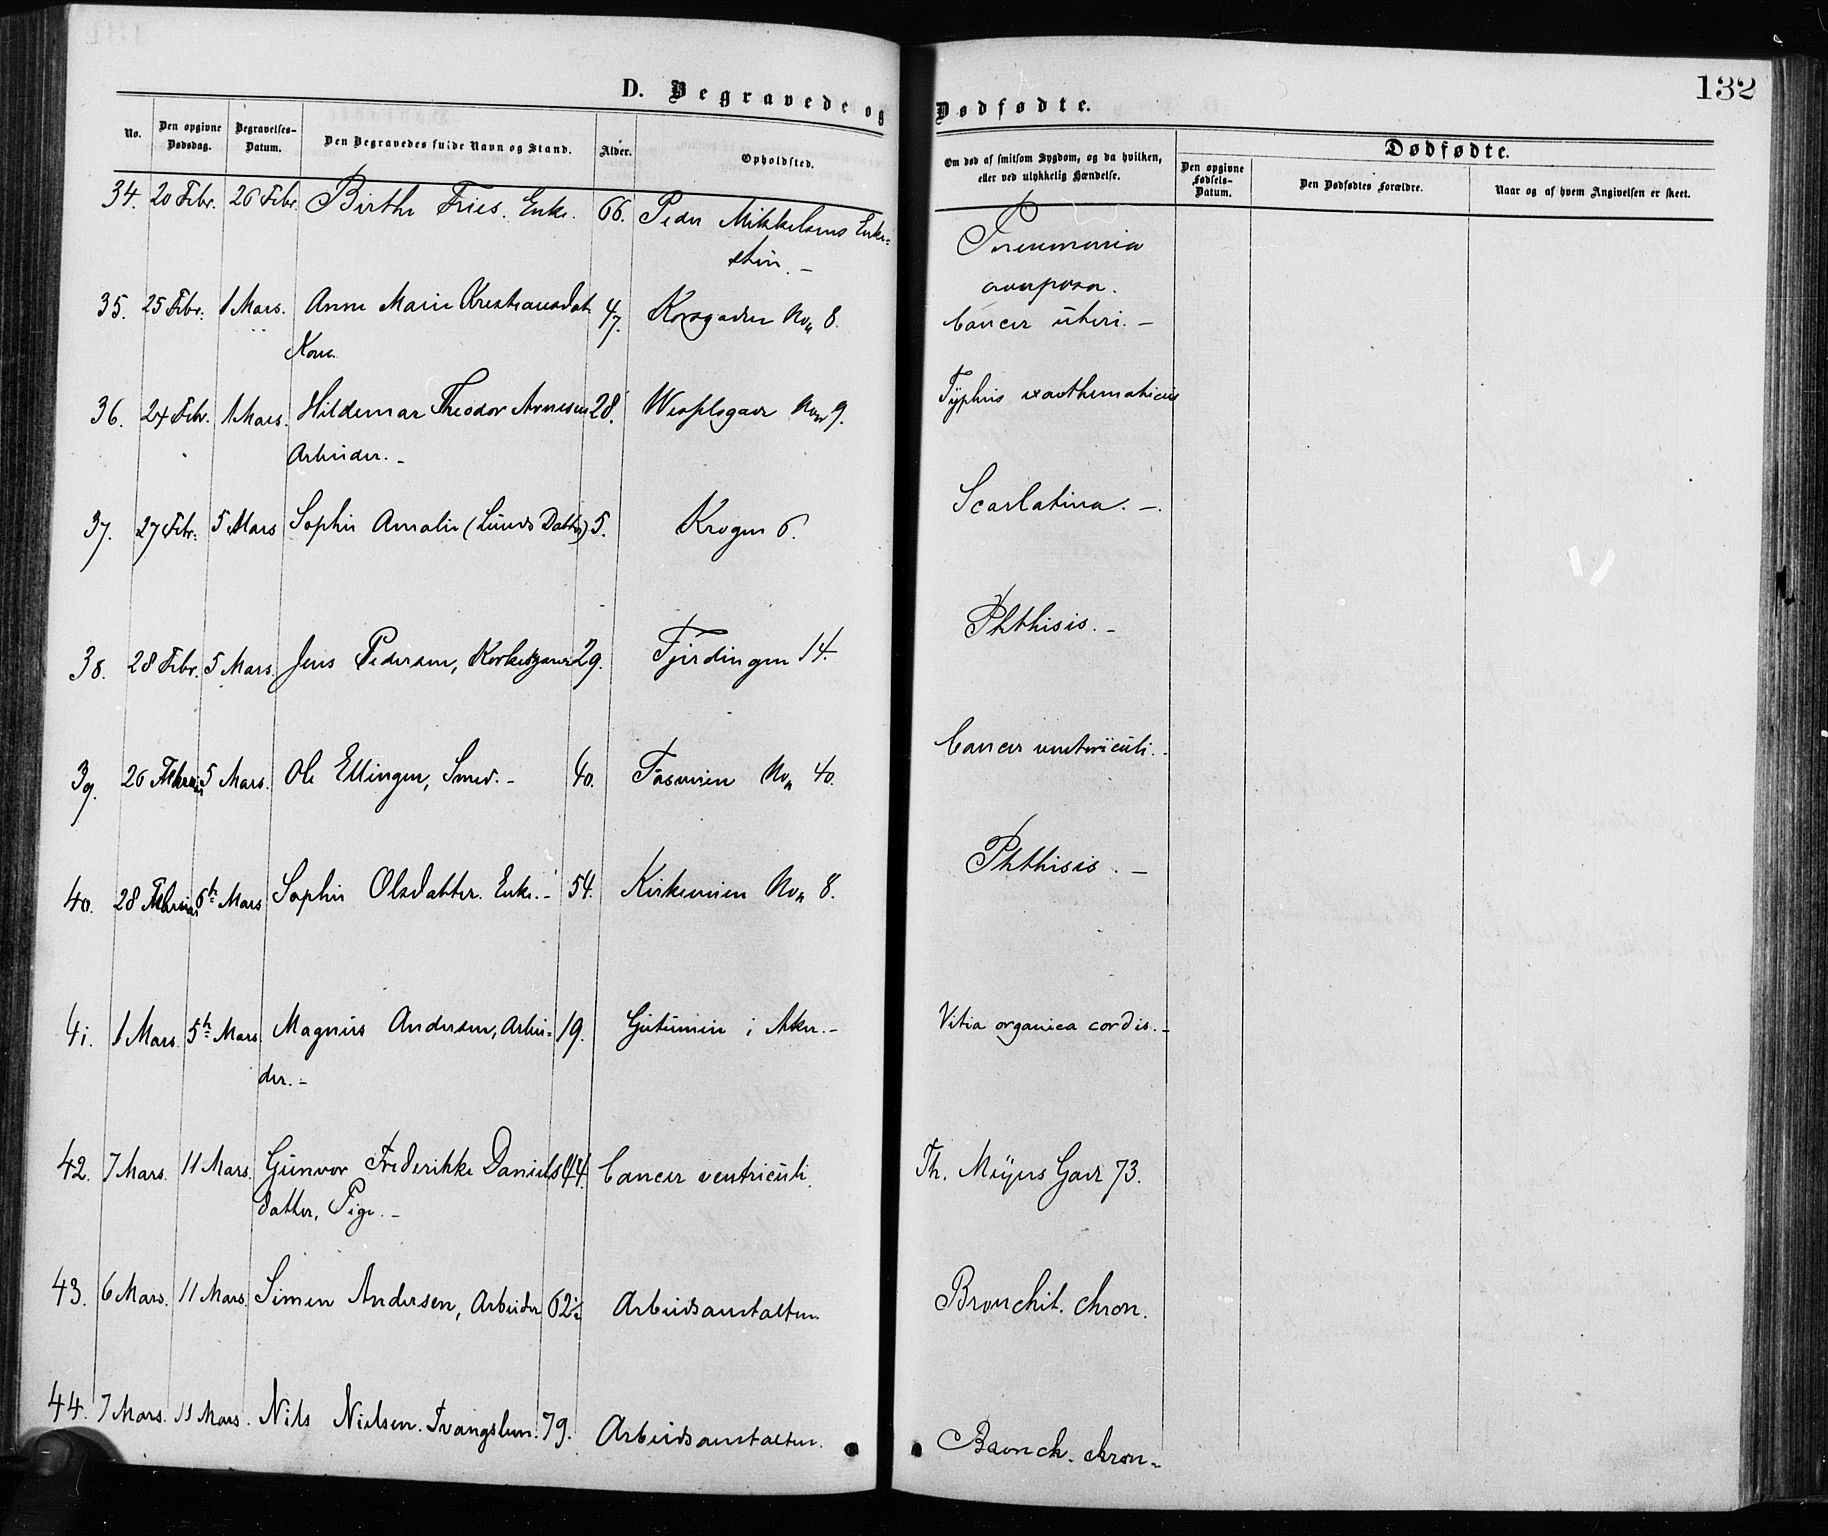 132
D. Begravede og Dødfødte.
No.
Den opgivne Dødsdag.
Begravelses-Datum.
Den Begravedes fulde Navn og Stand.
Alder.
Opholdsted.
Om død af smitsom Sygdom, og da hvilken, eller ved ulykkelig Hændelse.
Dødfødte.
Den opgivne Fødsels-Datum.
Den Dødfødtes Forældre.
Naar og af hvem Angivelsen er skeet.
34. 20 Febr. 26 Febr. Birthe Fries. Enke. 66. Peder Mikkelsens Enke= Pneumonia
stue. –
35. 25 Febr: 1 Mars. Anne Marie Kristiansdat 47. Korsgaden No 8. Cancer uteri. –
Kone.
36. 24 Febr. 1 Mars. Hildemar Theodor Arnesen 28. No 9. Typhus exanthematicus
Arbeider. –
37. 27 Febr: 5 Mars Sophie Amalie (Lunds Datter) 5. Krogen 6. Scarlatina. –.
38. 28 Febr. 5 Mars. Jens Pedersen, 29. Fjerdingen 14. Phthisis. –
39. 26 Februar 5 Mars. Ole Ellingen, Smed. – 40. No 40. Cancer ventriculi. –
40. 28 Februar 6te Mars Sophie Olsdatter. Enke. – 54. Kirkeveien No 8. Phthisis. –
41. 1 Mars. 5te Mars. Magnus Andersen, Arbei= 19. i Aker. – Vitia organica cordis. –
der. –
42. 7 Mars. 11 Mars. Gunvor Frederikke Daniels 44. Cancer ventriculi. Th. Meyers Gaar 73.
datter, Pige. –
43. 6 Mars. 11 Mars. Simen Andersen, Arbeider 62 Arbeidsanstalten. Bronchit. chron.
44. 7 Mars. 11 Mars. Nils Nielsen. Tvangslem. 79. Arbeidsanstalten. Bronch. chron–